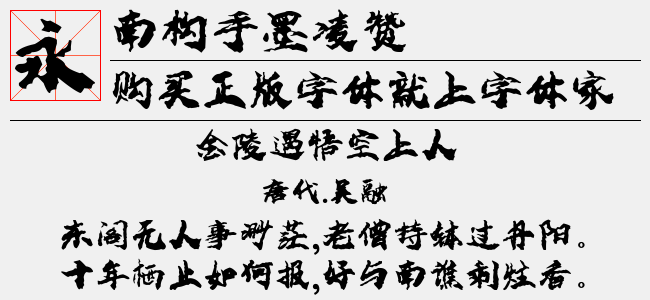 永
南构手墨凌赞
购买正版字体就上字体家
金陵遇悟空上人
唐代.吴融
东阁无人事渺茫,老僧持钵过丹阳。
十年栖止如何报,好与南谯剩炷香。